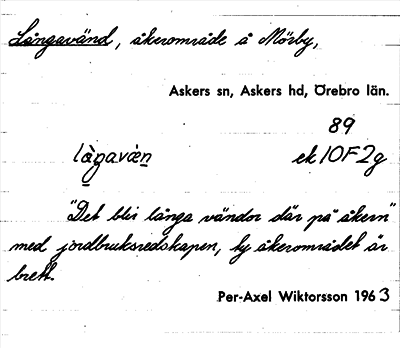 Långavänd, åkerområde å Mörby,
Askers sn, Askers hd, Örebro län.
89
lågavæn ek 10F2g
"Det blir långa vändor där på åkern"
med jordbruksredskapen, ty åkerområdet är
brett.
Per-Axel Wiktorsson 1963